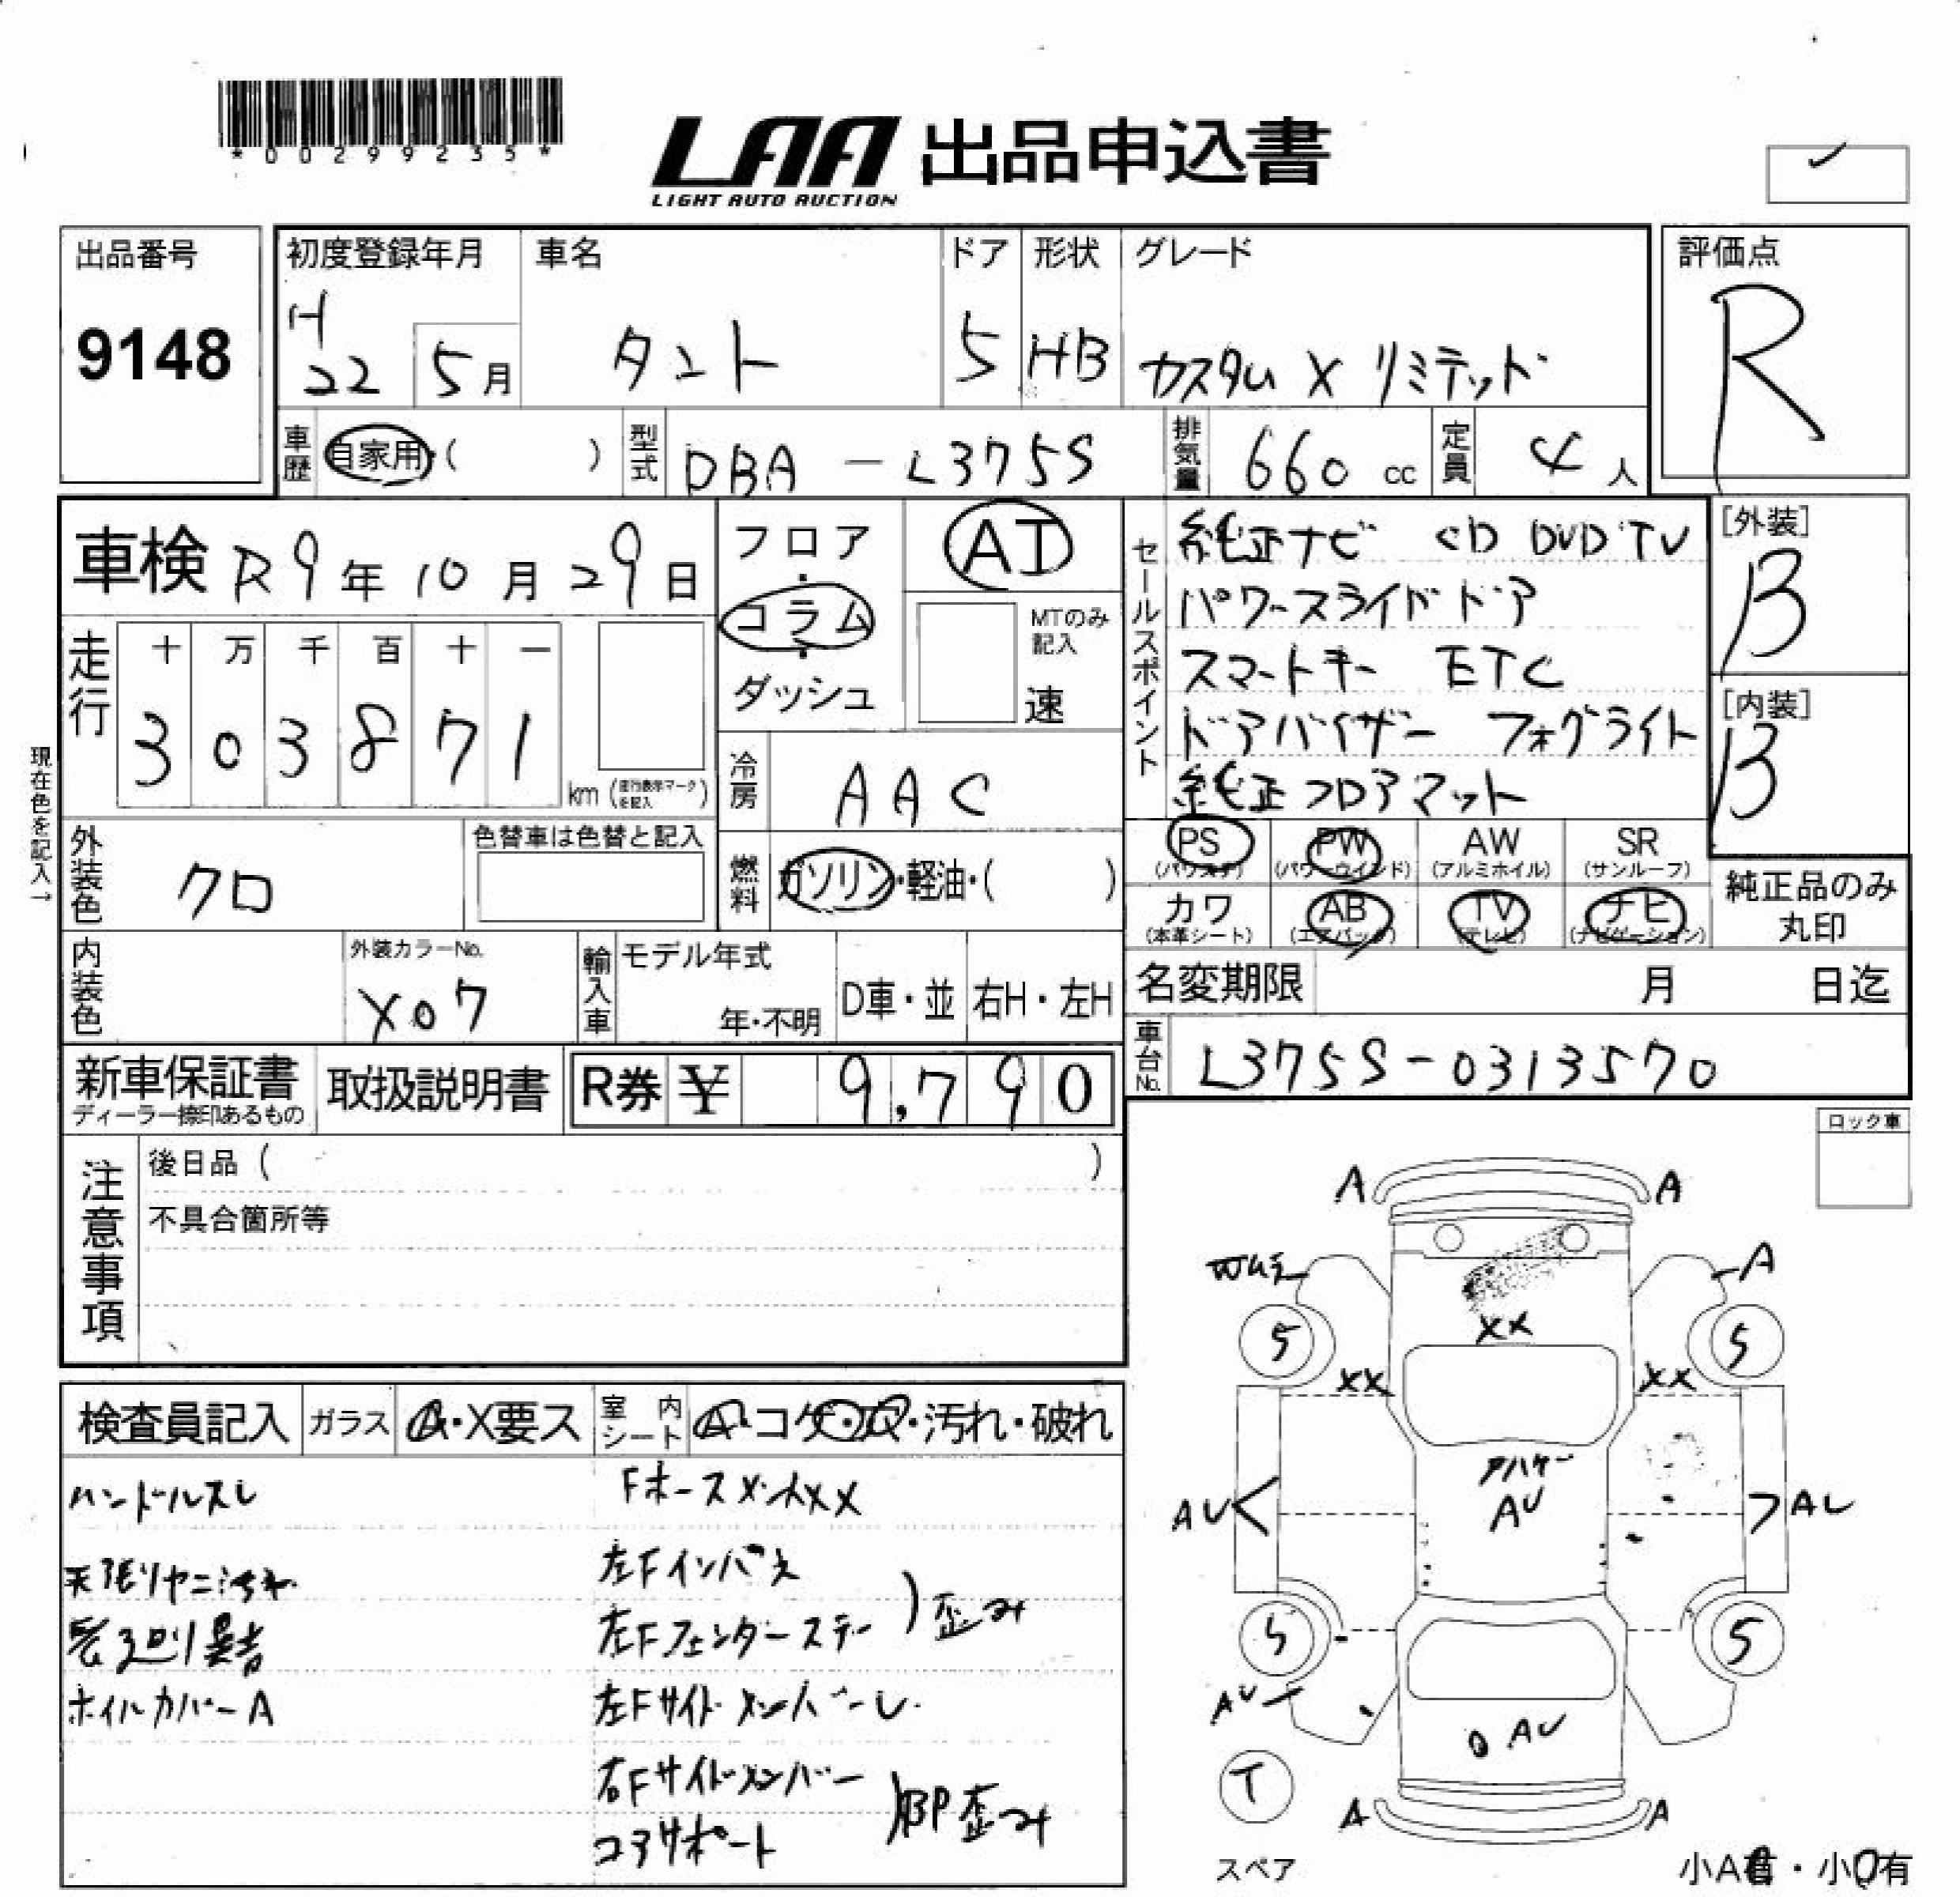 *00299235*
LAA 出品申込書
LIGHT AUTO AUCTION
出品番号
9148
初度登録年月
H22 5月
車名
タント
ドア
5
形状
HB
グレード
カスタム X リミテッド
評価点
R
車歴 自家用・( )
型式 DBA-L375S
排気量 660 cc
定員 4 人
車検 R9年 10月 29日
フロア・コラム・ダッシュ
AT
MTのみ記入
速
セールスポイント
純正ナビ CD DVD TV
パワースライドドア
スマートキー ETC
ドアバイザー フォグライト
純正フロアマット
[外装]
B
[内装]
B
走行
十 万 千 百 十 一
3 0 3 8 7 1
km (走行表示マークを記入)
現在色を記入→
冷房 AAC
外装色 クロ
色替車は色替と記入
燃料 ガソリン・軽油・( )
PS (パワステ)
PW (パワーウインド)
AW (アルミホイル)
SR (サンルーフ)
カワ (本革シート)
AB (エアバッグ)
TV (テレビ)
ナビ (ナビゲーション)
純正品のみ丸印
内装色
外装カラーNo.
X07
輸入車
モデル年式
年・不明
D車・並
右H・左H
名変期限 月 日迄
車台No. L375S-0313570
新車保証書
ディーラー捺印あるもの
取扱説明書
R券 ¥ 9,790
注意事項
後日品 ( )
不具合箇所等
ロック車
検査員記入
ガラス A・X要ス
室内シート
・汚れ・破れ
ハンドルスレ
天張りヤニ汚れ
異音
ホイルカバーA
左Fインパネ
左Fフェンダーステー
歪み
左Fサイドメンバーレ
右Fサイドメンバー
コアサポート
BP歪み
A A
A
XX
XX XX
5 5
AU
AU AU
5 5
AU
AU
T
A A
スペア
小A有・小U有